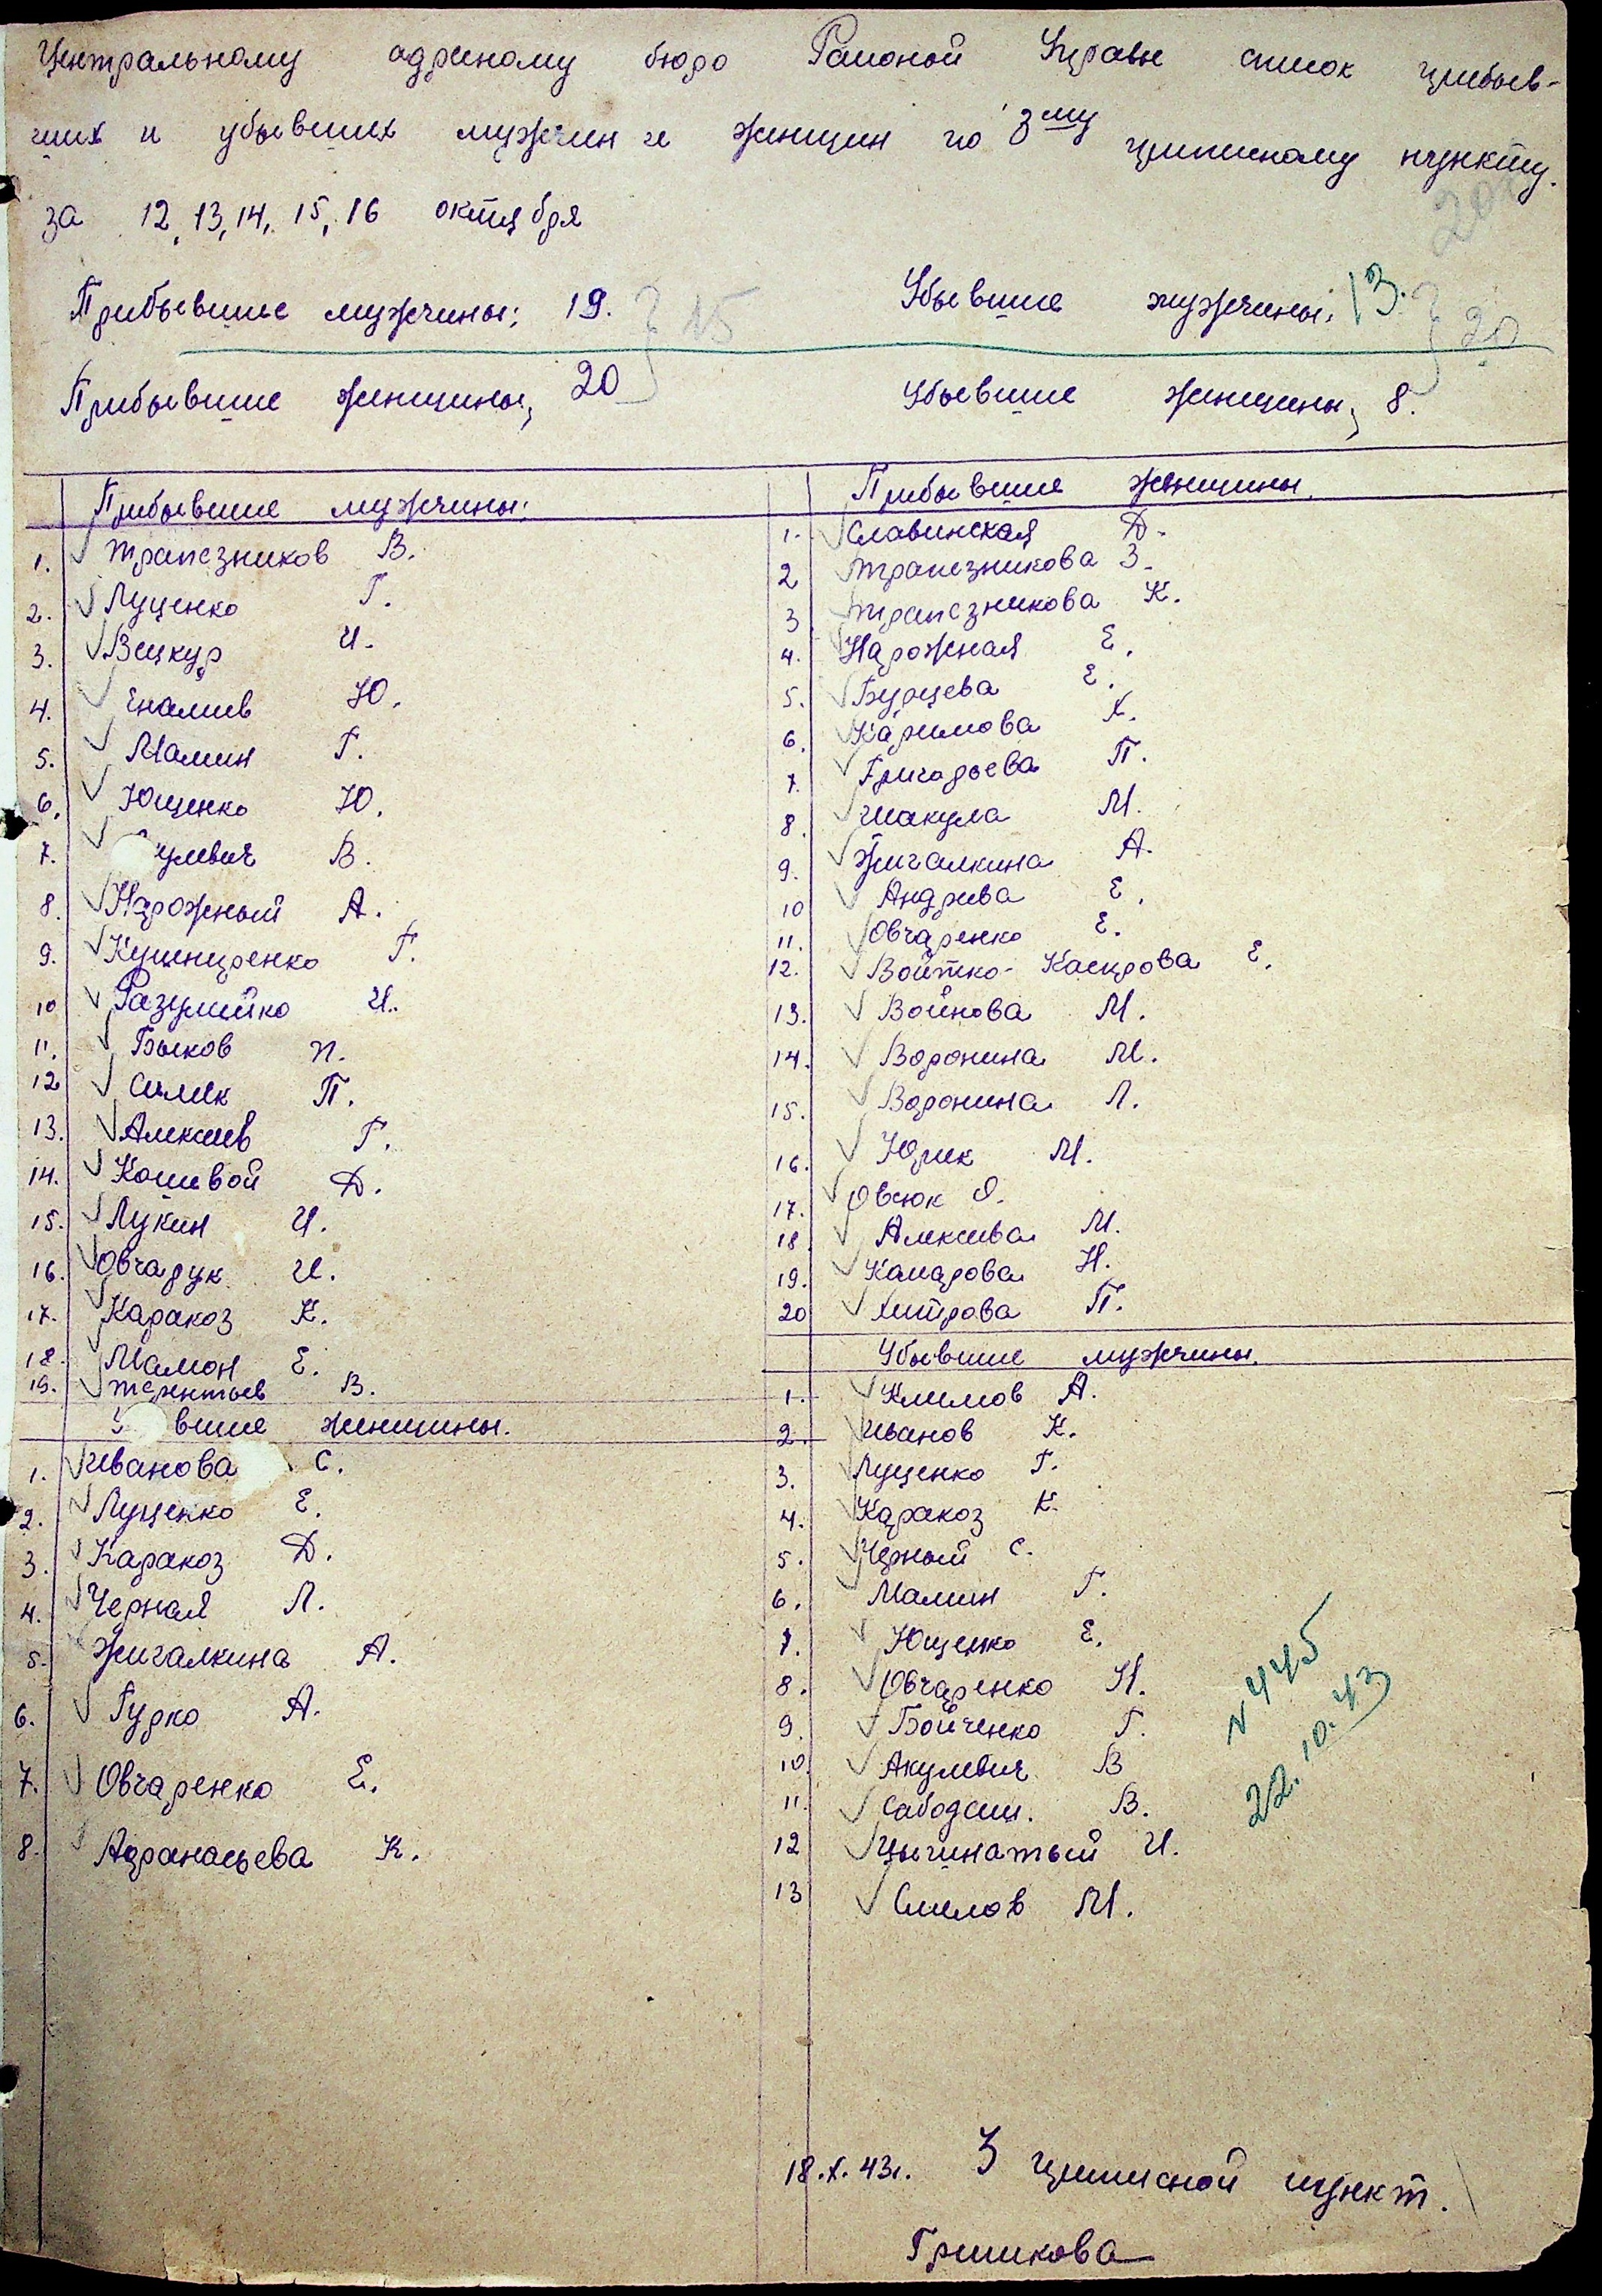 Центральному адресному бюро Районой Управы список прибыв-
ших и убывших мужчин и женщин по 3му приписному пункту.
за 12, 13, 14, 15, 16 октября
Прибывшие мужчины; 19. 15
Убывшие мужчины; 13. 20
Прибывшие женщины; 20
Убывшие женщины; 8.
Прибывшие мужчины:
1. Трапезников В.
2. Луценко Г.
3. Вецкур И.
4. Еналиев Ю.
5. Мамин Г.
6. Ющенко Ю.
7. улевич В.
8. Нарожный А.
9. Кушниренко Г.
10 Разумейко И.
11. Быков П.
12 Симек П.
13. Алексеев Г.
14. Кошевой Д.
15. Лукин И.
16. Овчарук И.
17. Каракоз К.
18. Мамон Е.
19. Терентьев В.
вшие женщины.
1. Иванова С.
2. Луценко Е.
3. Каракоз Д.
4. Черная Л.
5. Жигалкина А.
6. Гурко А.
7. Овчаренко Е.
8. К.
Прибывшие женщины.
1. Славинская Д.
2 Трапезникова З.
3 Трапезникова К.
4. Нарожная Е.
5. Бурцева Е.
6. Каримова Х.
7. Григорьева П.
8. Шакула М.
9. Жигалкина А.
10 Андреева Е.
11. Овчаренко Е.
12. Войтко-Каспрова Е.
13. Войнова М.
14. Воронина М.
15. Воронина Л.
16. Юрик М.
17. Овсюк О.
18 Алексеева М.
19. Комарова Н.
20 Хитрова П.
Убывшие мужчины.
1. Климов А.
2. Иванов К.
3. Луценко Г.
4. Каракоз К.
5. Черный С.
6. Мамин Г.
7. Ющенко Е.
8. Овчаренко Н.
9. Бойченко Г.
10 Акулевич В
11. В.
12 Цыгинатый И.
13 Смелов М.
N 445
22.10.43
18.X.43г. 3 приписной пункт.
Гришкова